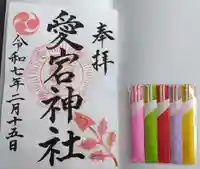 奉拝
愛宕神社
令和七年二月十五日